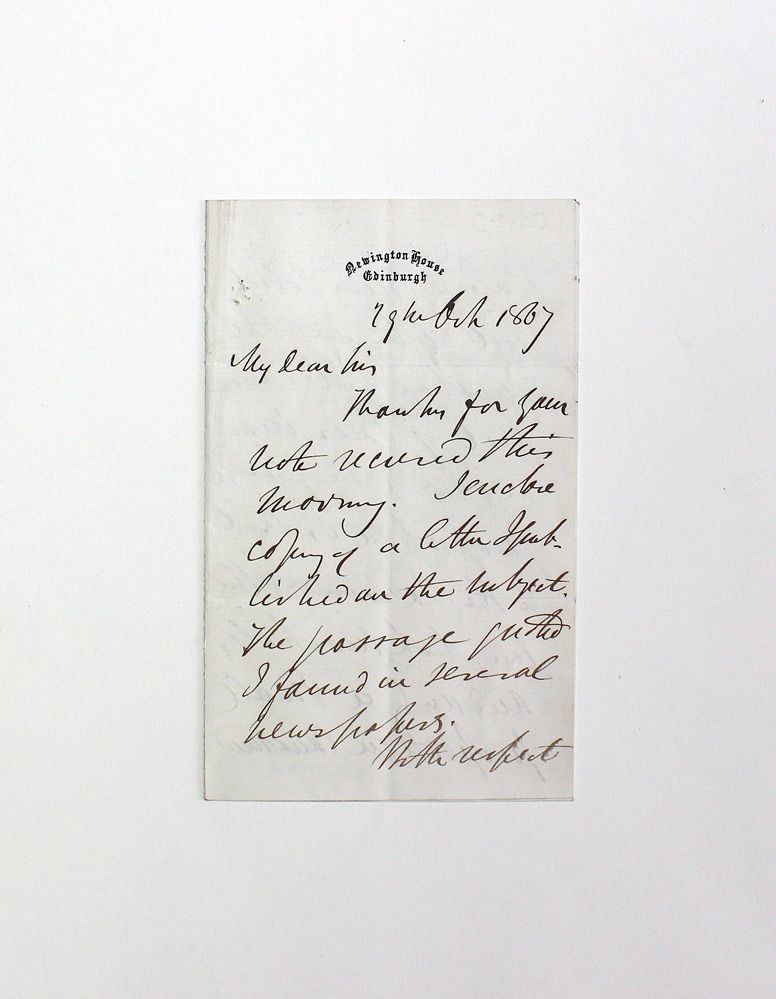 Newington House
Edinburgh
29th Oct 1867
My dear Sir
Thanks for your
note received this
morning. I enclose
copy of a letter I pub-
lished on the subject.
The passage quoted
I found in several
newspapers.
With respect